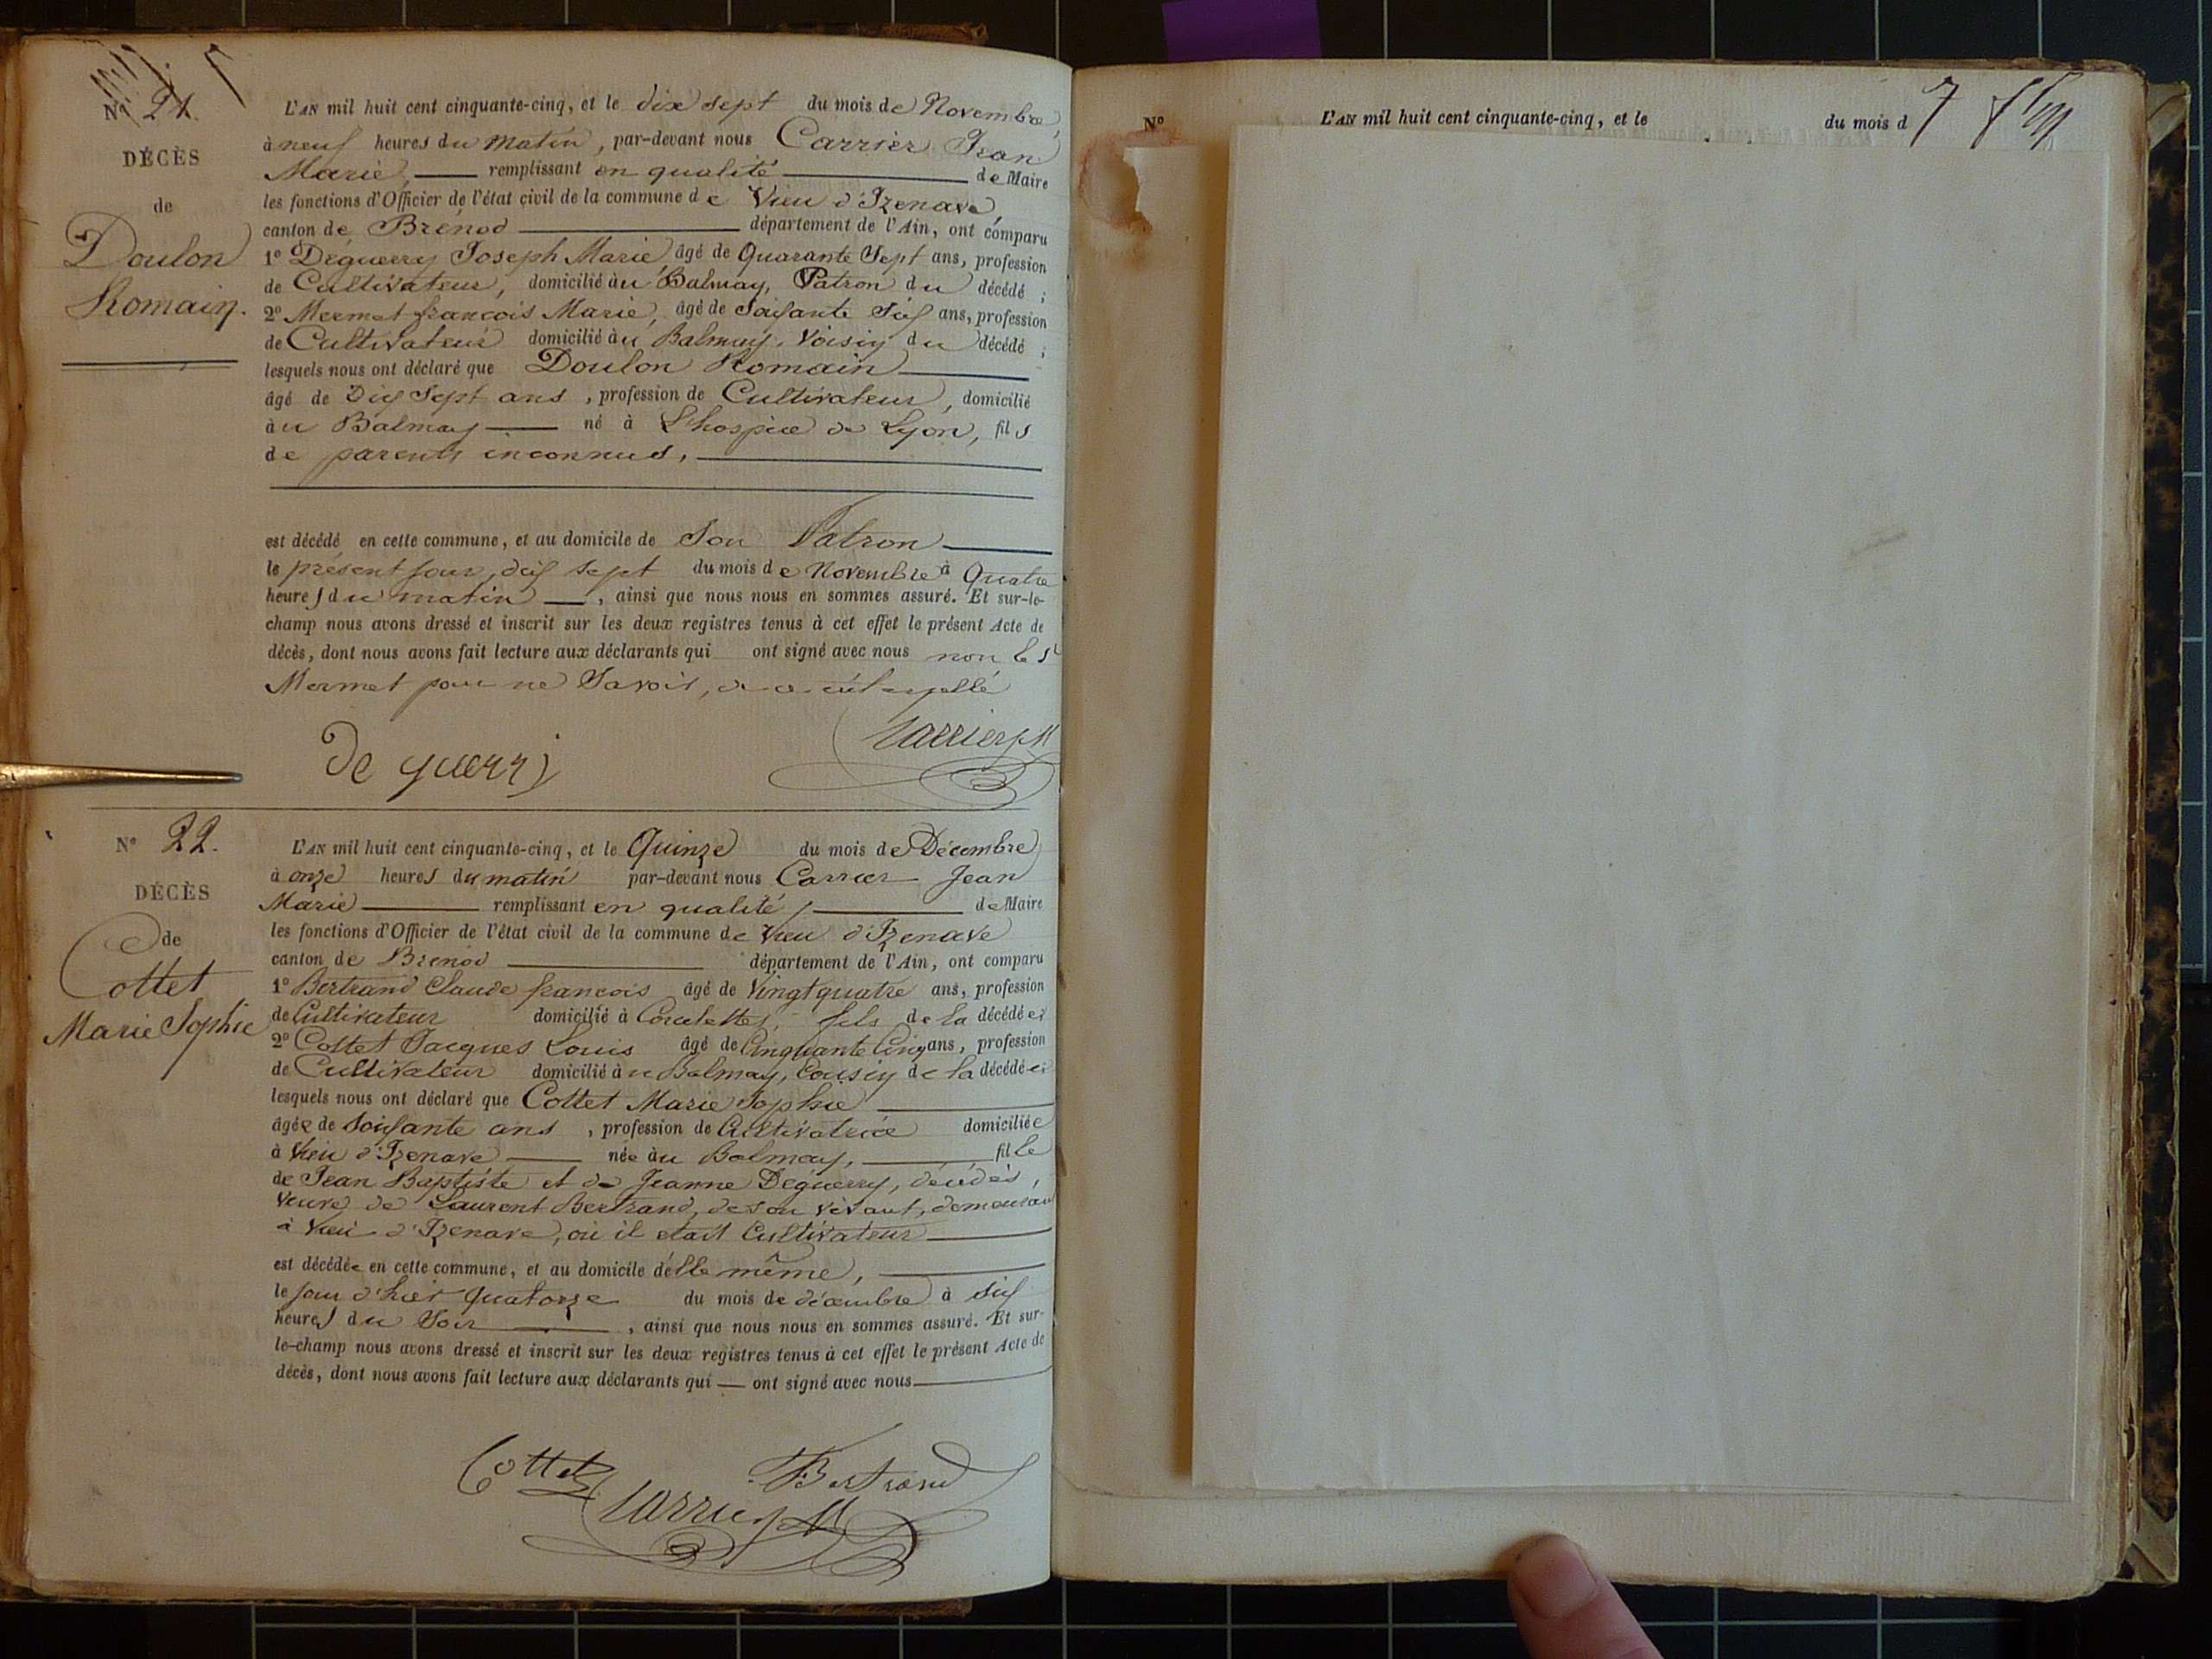 N° 21.
DÉCÈS
de
Doulon
Romain.
L'AN mil huit cent cinquante-cinq, et le dix sept du mois de Novembre,
à neuf heures du matin, par-devant nous Carrier Jean
Marie, remplissant en qualité de Maire
les fonctions d'Officier de l'état civil de la commune de Vieu d'Izenave,
canton de Brénod département de l'Ain, ont comparu
1° Déguerry Joseph Marie âgé de Quarante Sept ans, profession
de Cultivateur, domicilié au Balmay, Patron du décédé ;
2° Mermet françois Marie, âgé de Soixante Six ans, profession
de Cultivateur domicilié au Balmay, Voisin du décédé ;
lesquels nous ont déclaré que Doulon Romain
âgé de Dix Sept ans, profession de Cultivateur, domicilié
au Balmay né à L'hospice de Lyon, fils
de parents inconnus,
est décédé en cette commune, et au domicile de Son Patron
le présent jour, dix sept du mois de Novembre à Quatre
heures du matin, ainsi que nous nous en sommes assuré. Et sur-le-
champ nous avons dressé et inscrit sur les deux registres tenus à cet effet le présent Acte de
décès, dont nous avons fait lecture aux déclarants qui ont signé avec nous non le Sr
Mermet pour ne Savoir, de ce
De guerri
Carrier JM
N° 22.
DÉCÈS
de
Cottet
Marie Sophie
L'AN mil huit cent cinquante-cinq, et le Quinze du mois de Décembre
à onze heures du matin par-devant nous Carrier Jean
Marie remplissant en qualité, de Maire
les fonctions d'Officier de l'état civil de la commune de Vieu d'Izenave
canton de Brenod département de l'Ain, ont comparu
1° Bertrand Claude françois âgé de Vingt quatre ans, profession
de Cultivateur domicilié à Corcelettes, fils de la décédée ;
2° Cottet Jacques Louis âgé de Cinquante Cinq ans, profession
de Cultivateur domicilié au Balmay, Cousin de la décédée ;
lesquels nous ont déclaré que Cottet Marie Sophie
âgée de Soixante ans, profession de Cultivatrice domiciliée
à Vieu d'Izenave née au Balmay, fille
de Jean Baptiste et de Jeanne Déguerry, décédés,
Veuve de Laurent Bertrand, de son vivant, demeurant
à Vieu d'Izenave, où il etait Cultivateur
est décédée en cette commune, et au domicile d'elle même,
le jour d'hier quatorze du mois de décembre à six
heures du Soir, ainsi que nous nous en sommes assuré. Et sur-
le-champ nous avons dressé et inscrit sur les deux registres tenus à cet effet le présent Acte de
décès, dont nous avons fait lecture aux déclarants qui ont signé avec nous
Cottet
Bertrand
Carrier JM
N°
L'AN mil huit cent cinquante-cinq, et le du mois d
7